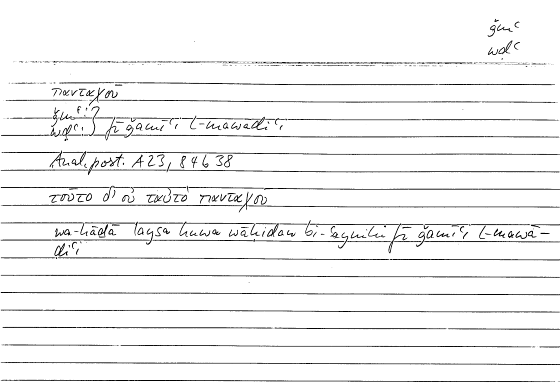 ǧmʿ
wḍʿ
πανταχοῦ
ǧmʿ:
wḍʿ: } fī ǧamīʿi l-mawāḍiʿi
Anal. post. A 23, 84 b 38
τοῦτο δ' οὐ ταὐτὸ πανταχοῦ
wa-hāḏā laysa huwa wāḥidan bi-ʿaynihi fī ǧamīʿi l-mawā-
ḍiʿi